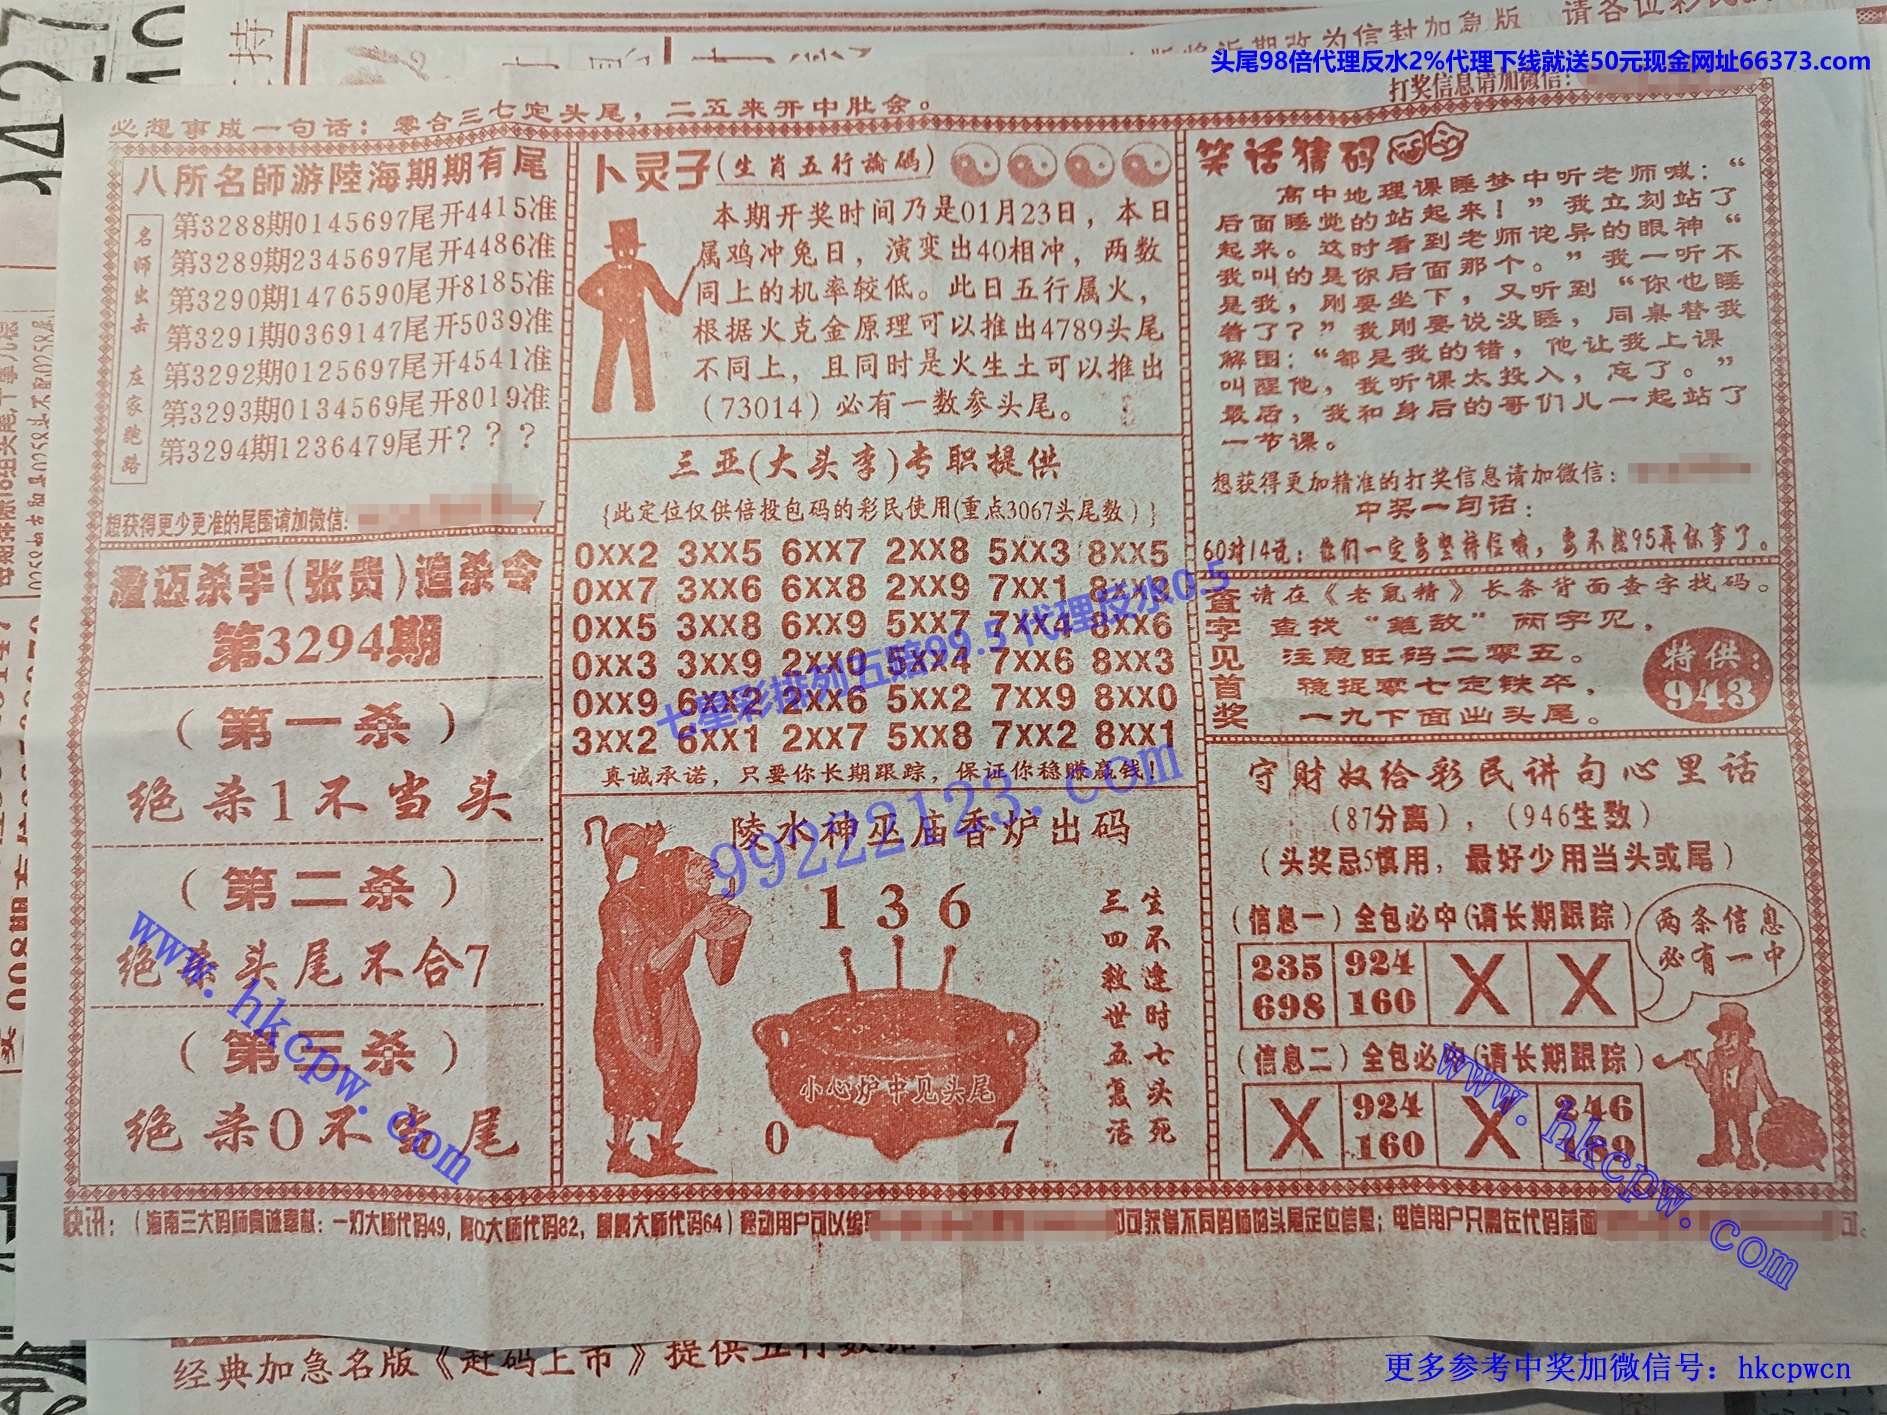 头尾98倍代理反水2%代理下线就送50元现金网址66373.com
改为信封加急版 请各位彩民
打奖信息请加微信：
必想事成一句话：零合三七定头尾，二五来开中肚会。
八所名師游陸海期期有尾
名师出击 庄家跑路
第3288期0145697尾开4415准
第3289期2345697尾开4486准
第3290期1476590尾开8185准
第3291期0369147尾开5039准
第3292期0125697尾开4541准
第3293期0134569尾开8019准
第3294期1236479尾开？？？
想获得更少更准的尾围请加微信:
澄迈杀手(张贵)追杀令
第3294期
(第一杀)
绝杀1不当头
(第二杀)
绝杀头尾不合7
(第三杀)
绝杀0不当尾
卜灵子(生肖五行論碼)
本期开奖时间乃是01月23日，本日
属鸡冲兔日，演变出40相冲，两数
同上的机率较低。此日五行属火，
根据火克金原理可以推出4789头尾
不同上，且同时是火生土可以推出
（73014）必有一数参头尾。
三亚(大头李)专职提供
{此定位仅供倍投包码的彩民使用(重点3067头尾数）}
0XX2 3XX5 6XX7 2XX8 5XX3 8XX5
0XX7 3XX6 6XX8 2XX9 7XX1
0XX5 3XX8 6XX9 5XX7 7XX4 8XX6
0XX3 3XX9 2XX0 5XX4 7XX6 8XX3
0XX9 6XX2 2XX6 5XX2 7XX9 8XX0
3XX2 6XX1 2XX7 5XX8 7XX2 8XX1
真诚承诺，只要你长期跟踪，保证你稳赚赢钱！
陵水神巫庙香炉出码
1 3 6
小心炉中见头尾
0 7
生不逢时七头死
三四救世五复活
笑话猜码
高中地理课睡梦中听老师喊：“
后面睡觉的站起来！”我立刻站了
起来。这时看到老师诧异的眼神“
我叫的是你后面那个。”我一听不
是我，刚要坐下，又听到“你也睡
着了？”我刚要说没睡，同桌替我
解围：“都是我的错，他让我上课
叫醒他，我听课太投入，忘了。”
最后，我和身后的哥们儿一起站了
一节课。
想获得更加精准的打奖信息请加微信：
中奖一句话：
60对14说：你们一定要坚持住哦，要不然95再休事了。
查字见首奖
请在《老鼠精》长条背面查字找码。
查找“笔敌”两字见，
注意旺码二零五。
稳捉零七定铁卒，
一九下面出头尾。
特供：
943
守财奴给彩民讲句心里话
（87分离），（946生数）
（头奖忌5慎用，最好少用当头或尾）
（信息一）全包必中(请长期跟踪）
235 924 X X
698 160
两条信息
必有一中
（信息二）全包必中(请长期跟踪）
X 924 X 246
160
快讯：（海南三大码师真诚奉献：一灯大师代码49，阿Q大师代码82，麒麟大师代码64）移动用户可以编
即可获得不同码师的头尾定位信息；电信用户只需在代码前面
七星彩排列五赔99.5 代理反水0.5
99222123.com
www.hkcpw.com
www.hkcpw.com
经典加急名版《赶码上市》提供五行数据
更多参考中奖加微信号：hkcpwcn